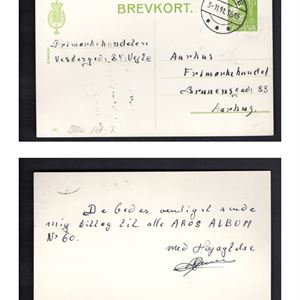 BREVKORT.
Frimærkehandelen
Vestergade 34 Vejle
Aarhus
Frimærkehandel
Bruunsgade 33
Aarhus.
De bedes venligst sende
mig tillæg til alle AROS ALBUM
Nº 60.
med Højagtelse